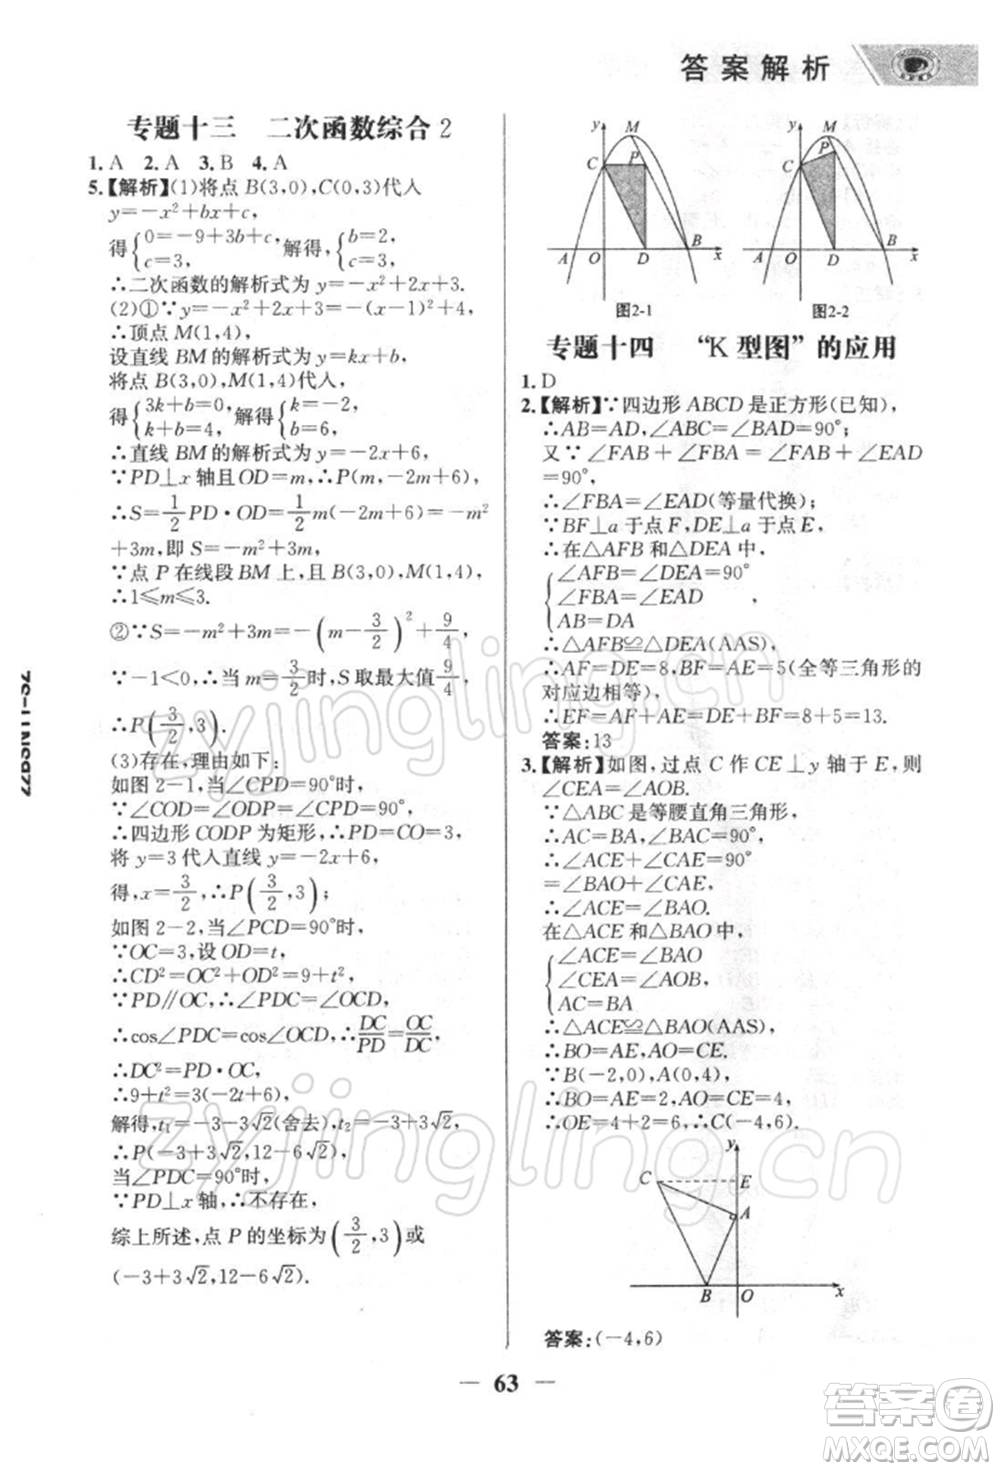 答案解析
专题十三 二次函数综合2
1. A 2. A 3. B 4. A
5.【解析】(1)将点 B(3,0),C(0,3)代入
y=-x²+bx+c,
得{0=-9+3b+c, c=3, 解得,{b=2, c=3,
∴二次函数的解析式为 y=-x²+2x+3.
(2)①∵y=-x²+2x+3=-(x-1)²+4,
∴顶点 M(1,4),
设直线 BM 的解析式为 y=kx+b,
将点 B(3,0),M(1,4)代入,
得{3k+b=0, k+b=4, 解得{k=-2, b=6,
∴直线 BM 的解析式为 y=-2x+6,
∵PD⊥x 轴且 OD=m,∴P(m,-2m+6),
∴S=1/2 PD·OD=1/2 m(-2m+6)=-m²
+3m,即 S=-m²+3m,
∵点 P 在线段 BM 上,且 B(3,0),M(1,4),
∴1≤m≤3.
②∵S=-m²+3m=-(m-3/2)²+9/4,
∵-1<0,∴当 m=3/2时,S 取最大值,
∴P(3/2,3).
(3)存在,理由如下:
如图 2-1,当∠CPD=90°时,
∵∠COD=∠ODP=∠CPD=90°,
∴四边形 CODP 为矩形,∴PD=CO=3,
将 y=3 代入直线 y=-2x+6,
得,x=3/2,∴P(3/2,3);
如图 2-2,当∠PCD=90°时,
∵OC=3,设 OD=t,
∴CD²=OC²+OD²=9+t²,
∵PD∥OC,∴∠PDC=∠OCD,
∴cos∠PDC=cos∠OCD,∴DC/PD=OC/DC,
∴DC²=PD·OC,
∴9+t²=3(-2t+6),
解得,t₁=-3-3√2(舍去),t₂=-3+3√2,
∴P(-3+3√2,12-6√2),
当∠PDC=90°时,
∵PD⊥x 轴,∴不存在,
综上所述,点 P 的坐标为(3/2,3)或
(-3+3√2,12-6√2).
y M C P A O D B x
图2-1
y M C P A O D B x
图2-2
专题十四 “K 型图”的应用
1. D
2.【解析】∵四边形 ABCD 是正方形(已知),
∴AB=AD,∠ABC=∠BAD=90°;
又∵∠FAB+∠FBA=∠FAB+∠EAD
=90°,
∴∠FBA=∠EAD(等量代换);
∵BF⊥a 于点 F,DE⊥a 于点 E,
∴在△AFB 和△DEA 中,
{∠AFB=∠DEA=90°
∠FBA=∠EAD ,
AB=DA
∴△AFB≌△DEA(AAS),
∴AF=DE=8,BF=AE=5(全等三角形的
对应边相等),
∴EF=AF+AE=DE+BF=8+5=13.
答案:13
3.【解析】如图,过点 C 作 CE⊥y 轴于 E,则
∠CEA=∠AOB.
∵△ABC 是等腰直角三角形,
∴AC=BA,∠BAC=90°,
∴∠ACE+∠CAE=90°
=∠BAO+∠CAE,
∴∠ACE=∠BAO.
在△ACE 和△BAO 中,
{∠ACE=∠BAO
∠CEA=∠AOB,
AC=BA
∴△ACE≌△BAO(AAS),
∴BO=AE,AO=CE.
∵B(-2,0),A(0,4),
∴BO=AE=2,AO=CE=4,
∴OE=4+2=6,∴C(-4,6).
y C E A B O x
答案:(-4,6)
63
ZZDSN11-9Z
zyjingling.com
zyjingling.cn
答案圈
MXQE.COM